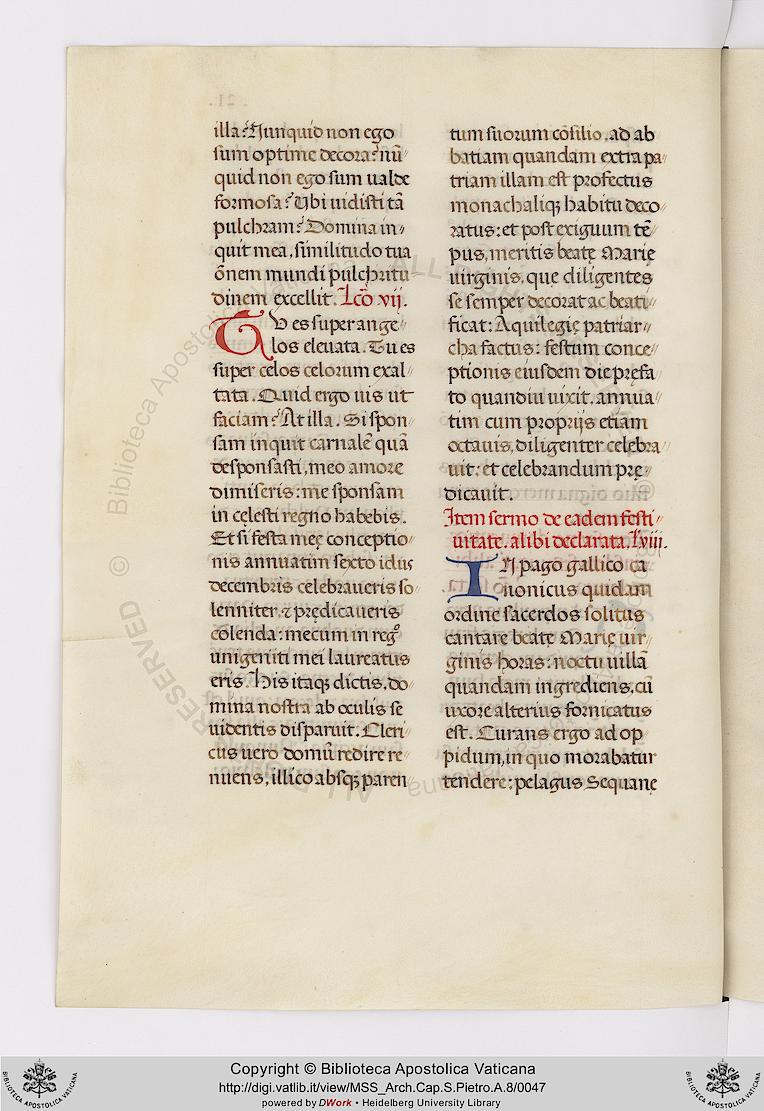 illa? Nunquid non ego
sum optime decora? nū
quid non ego sum ualde
formosa? Vbi uidisti tā
pulchram? Domina in
quit mea, similitudo tua
ōnem mundi pulchritu
dinem excellit. Lcō vij.
TV es super ange
los eleuata. Tu es
super celos celorum exal
tata. Quid ergo uis ut
faciam? At illa. Si spon
sam inquit carnalē quā
desponsasti, meo amore
dimiseris: me sponsam
in cęlesti regno habebis.
Et si festa meę conceptio
nis annuatim sexto idus
decembris celebraueris so
lenniter, ⁊ prędicaueris
cōlenda: mecum in regᵒ
unigeniti mei laureatus
eris. His itaqꝫ dictis, do
mina nostra ab oculis se
uidentis disparuit. Cleri
cus uero domū redire re
nuens, illico absqꝫ paren
tum suorum cōsilio, ad ab
batiam quandam extra pa
triam illam est profectus
monachaliqꝫ habitu deco
ratus: et post exiguum tē
pus, meritis beatę Marię
uirginis, que diligentes
se semper decorat ac beati
ficat: Aquilegię patriar
cha factus: festum conce
ptionis eiusdem die pręfa
to quandiu uixit, annua
tim cum proprijs etiam
octauis, diligenter celebra
uit: et celebrandum prę
dicauit.
Item sermo de eadem festi
uitate, alibi declarata. L.viii.
IN pago gallico ca
nonicus quidam
ordine sacerdos solitus
cantare beatę Marię uir
ginis horas: noctu uillā
quandam ingrediens, cū
uxore alterius fornicatus
est. Curans ergo ad op
pidum, in quo morabatur
tendere: pelagus Sequanę
Copyright © Biblioteca Apostolica Vaticana
http://digi.vatlib.it/view/MSS_Arch.Cap.S.Pietro.A.8/0047
powered by DWork • Heidelberg University Library
BIBLIOTECA APOSTOLICA VATICANA
BIBLIOTECA APOSTOLICA VATICANA